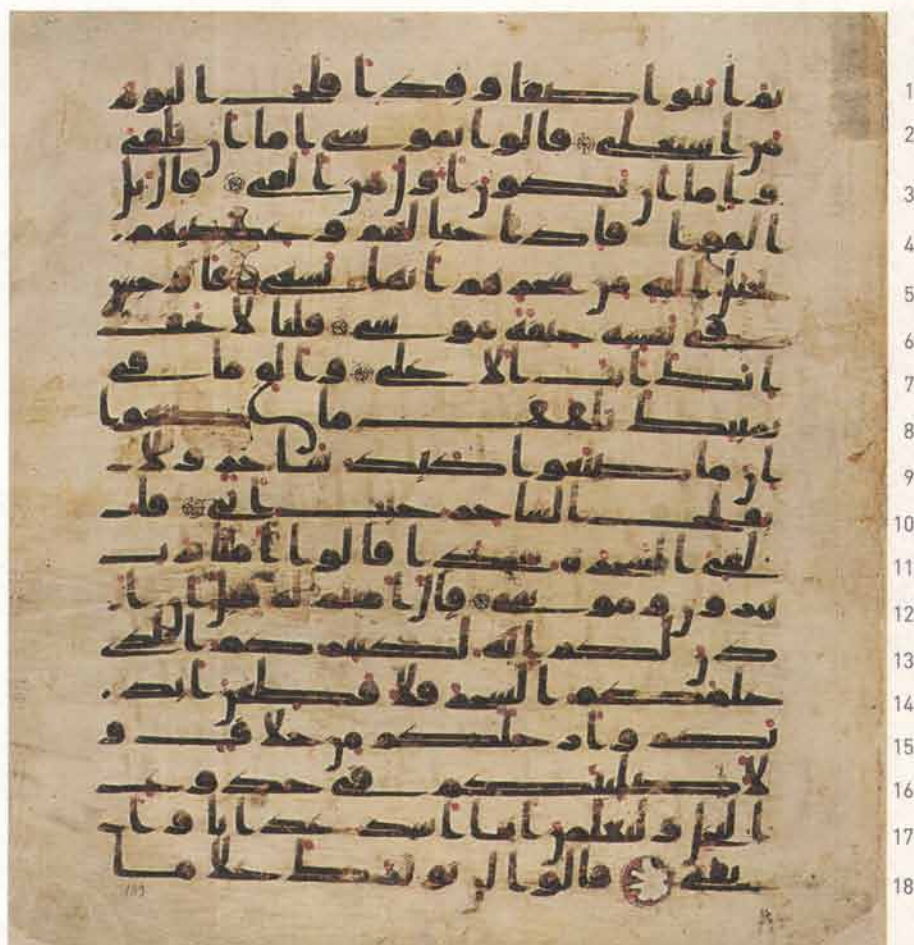 1 ثم ائتوا صفا وقد افلح اليوم
2 من استعلى قالوا يموسى اما ان تلقى
3 واما ان نكون اول من القى قال بل
4 القوا فاذا حبالهم وعصيهم
5 يخيل اليه من سحرهم انها تسعى فاوجس
6 في نفسه خيفة موسى قلنا لا تخف
7 انك انت الاعلى والق ما في
8 يمينك تلقف ما صنعوا
9 انما صنعوا كيد ساحر ولا
10 يفلح الساحر حيث اتى فا
11 لقي السحرة سجدا قالوا امنا برب
12 هرون وموسى قال امنتم له قبل ان ا
13 ذن لكم انه لكبيركم الذي
14 علمكم السحر فلا قطعن ايد
15 يكم وارجلكم من خلاف و
16 لا صلبنكم في جذوع
17 النخل ولتعلمن اينا اشد عذابا وا
18 بقى قالوا لن نوثرك على ما